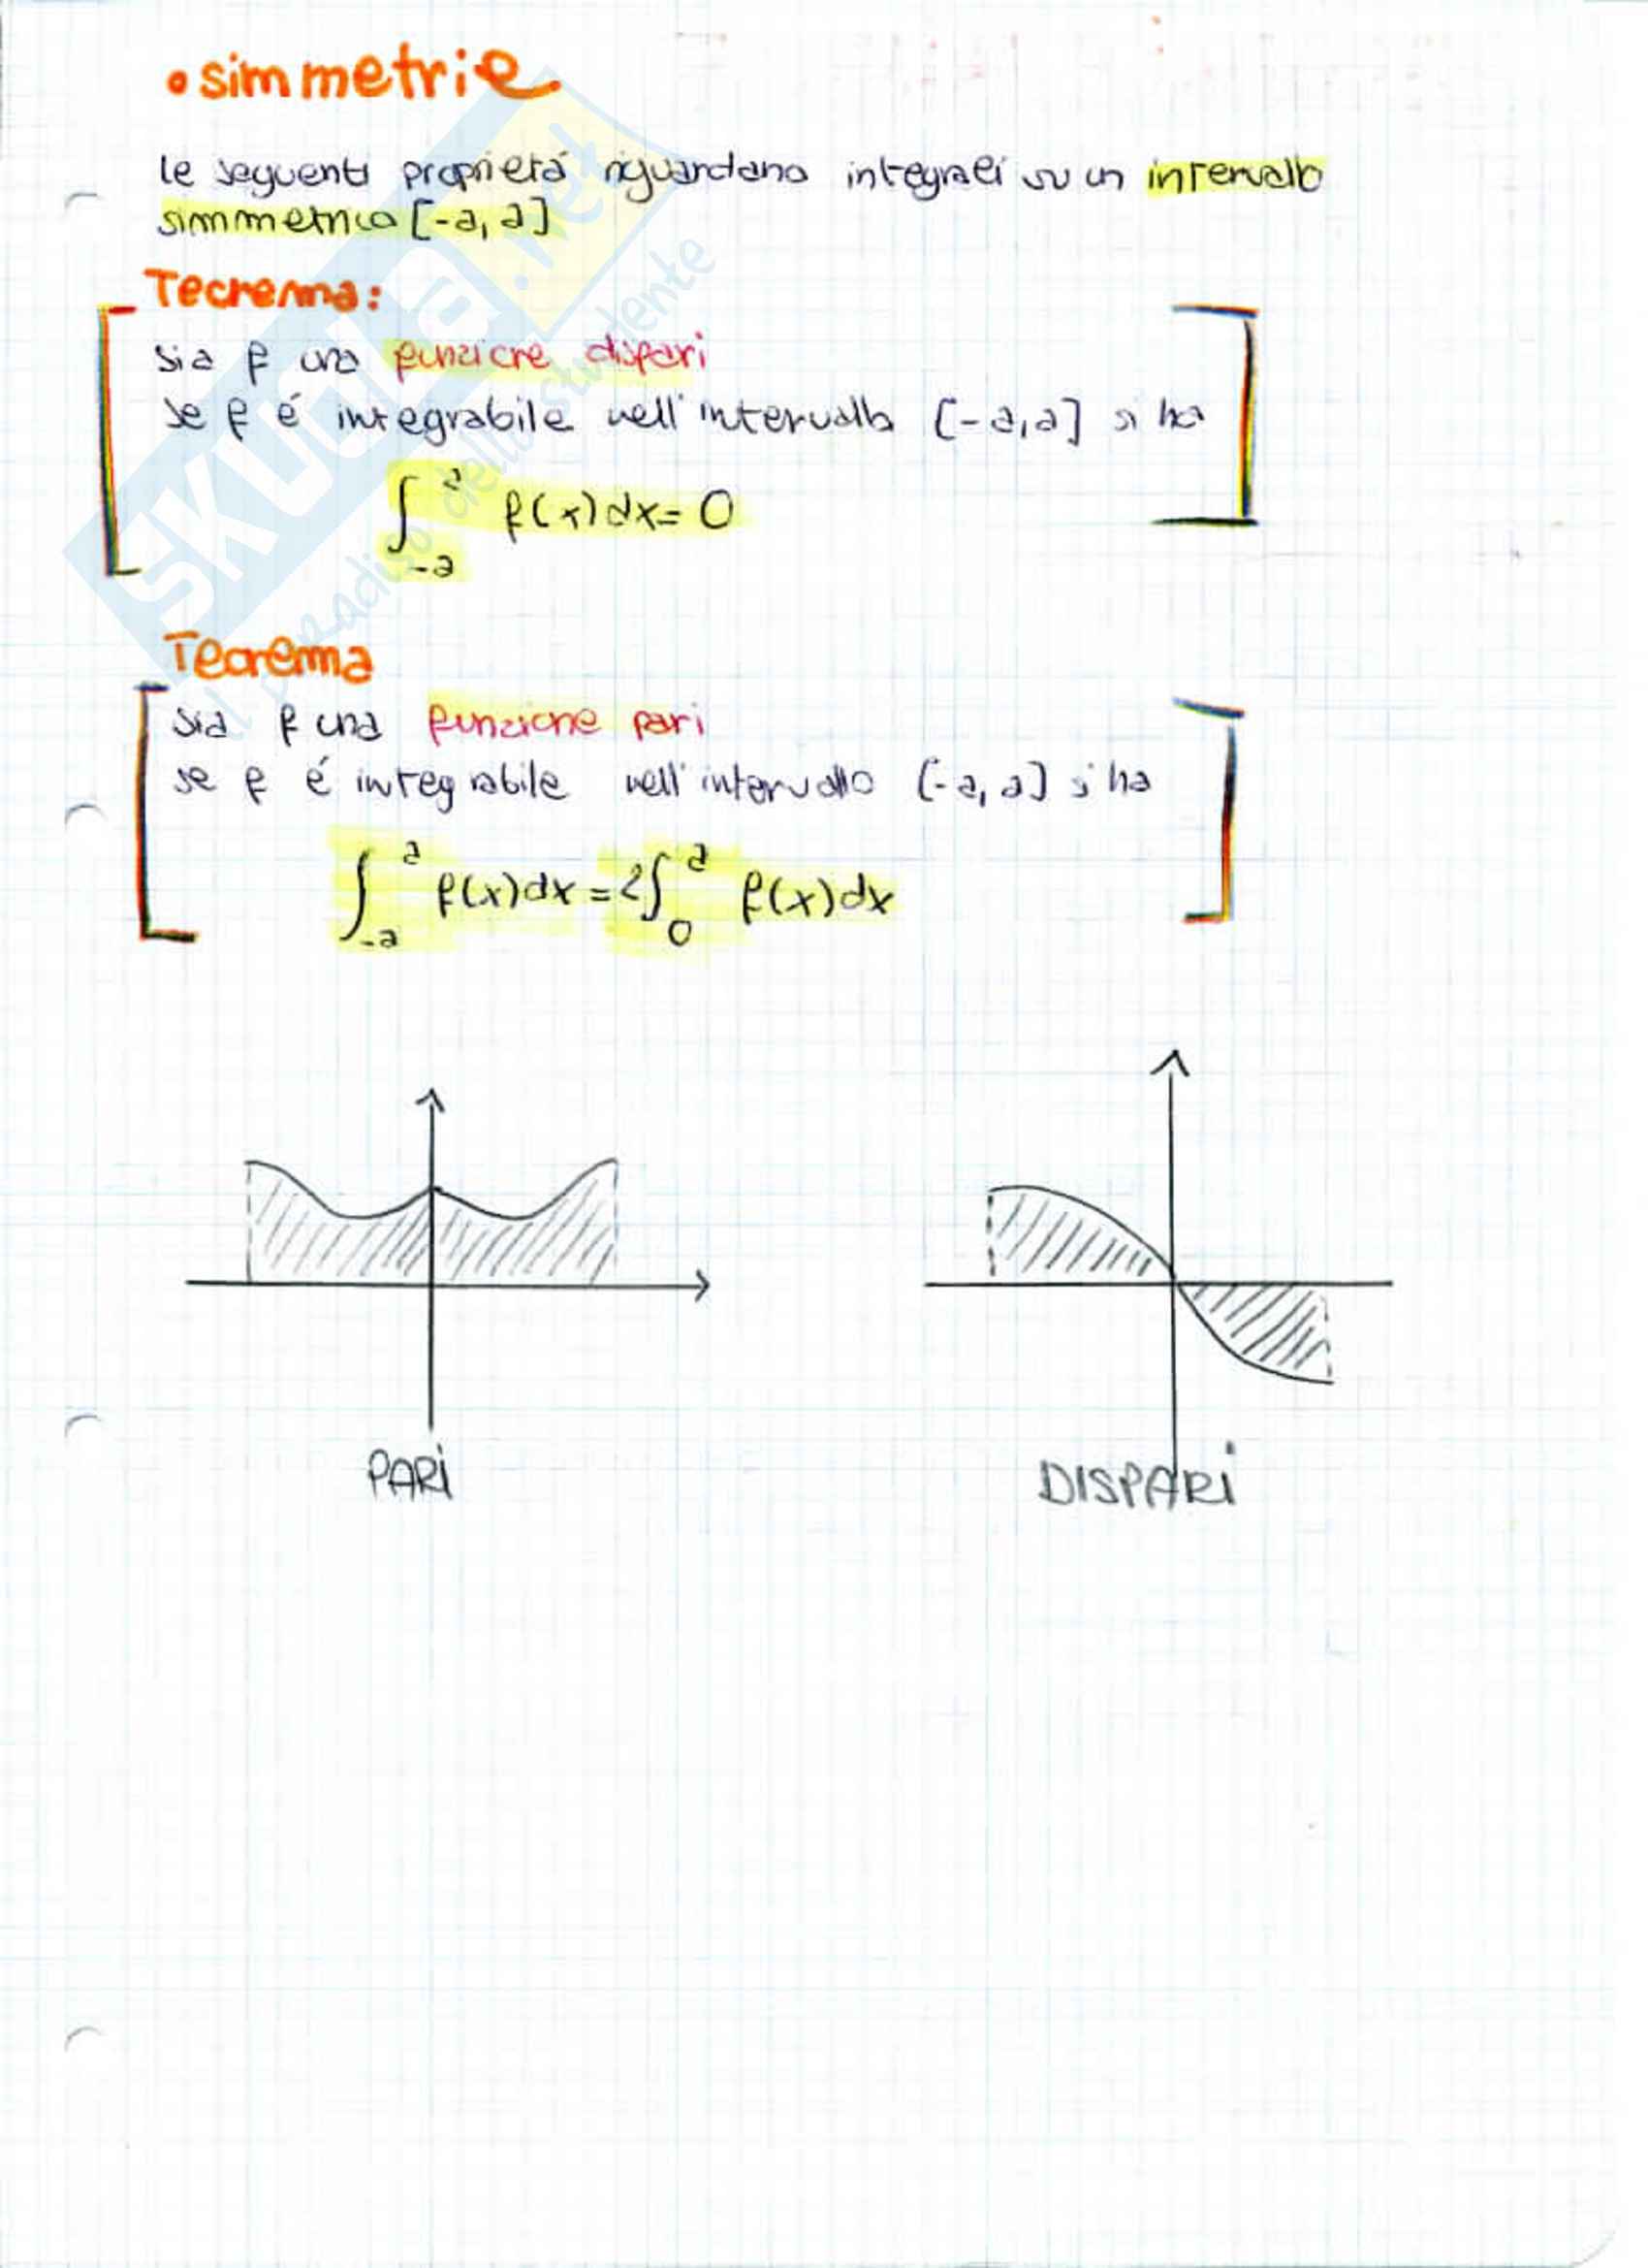 • simmetrie
le seguenti proprietá riguardano integrali su un intervallo
simmetrico [-a, a]
Teorema:
sia f una funzione dispari
se f é integrabile nell'intervallo [-a,a] si ha
∫_{-a}^{a} f(x)dx = 0
Teorema
sia f una funzione pari
se f é integrabile nell'intervallo [-a, a] si ha
∫_{-a}^{a} f(x)dx = 2∫_{0}^{a} f(x)dx
PARi
DISPARi
SKUOLA.net
il paradiso dello studente